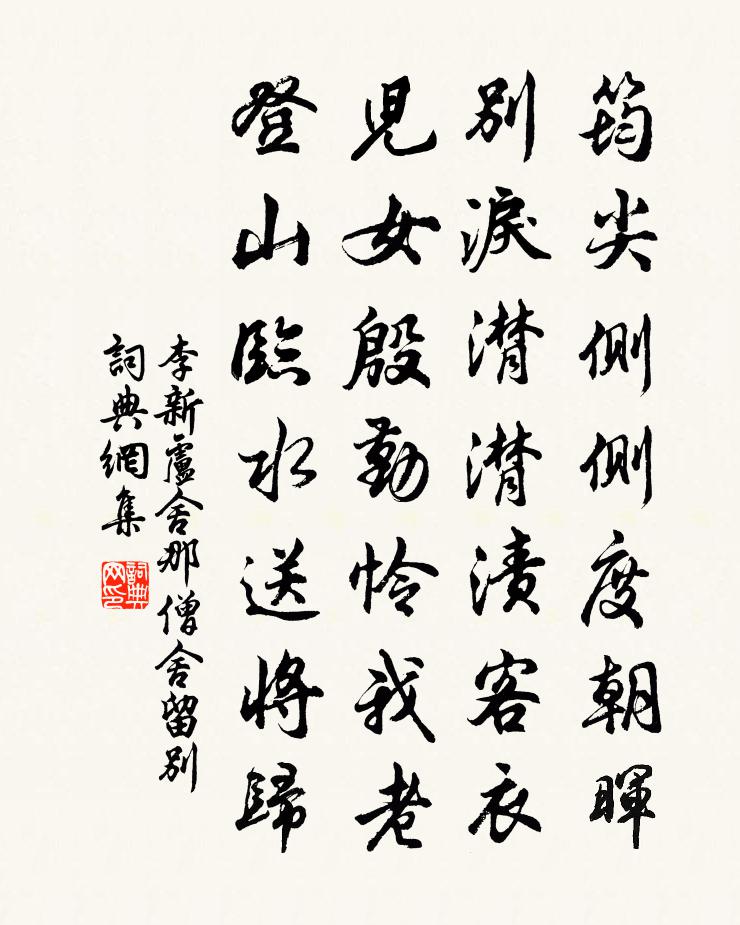 筠尖側側度朝暉
別淚潸潸漬客衣
兒女殷勤怜我老
登山臨水送將歸
李新盧舍那僧舍留別
詞典網集
詞典網印